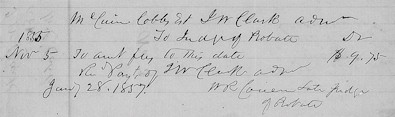 McCuin Cobbs Est J W Clark adm
To Judge of Probate Dr
1855
Nov 5 To amt fees to this date $9.75
Rec Payt of J W Clark adm
Jany 28. 1857. W R Cowen late Judge
of Probate